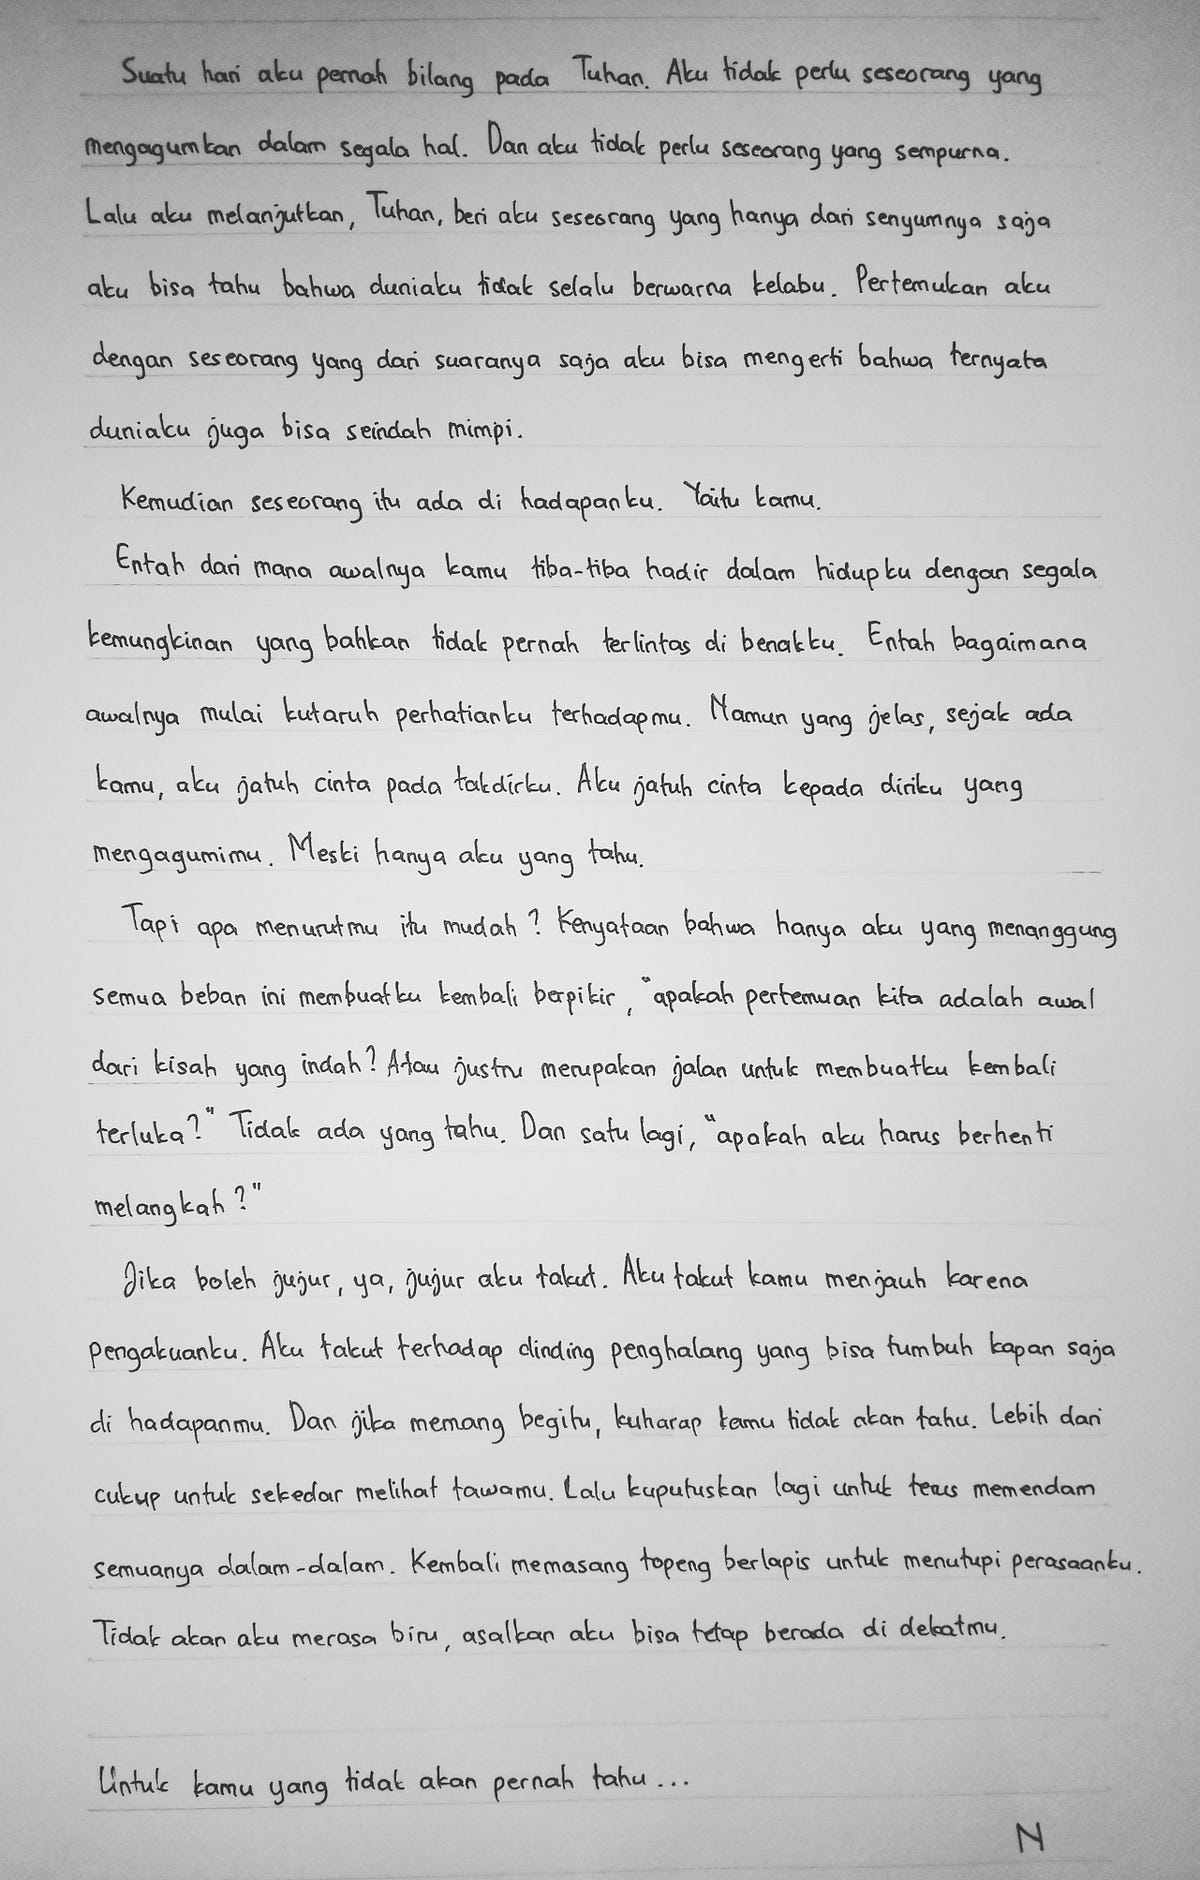 Suatu hari aku pernah bilang pada Tuhan. Aku tidak perlu seseorang yang
mengagumkan dalam segala hal. Dan aku tidak perlu seseorang yang sempurna.
Lalu aku melanjutkan, Tuhan, beri aku seseorang yang hanya dari senyumnya saja
aku bisa tahu bahwa duniaku tidak selalu berwarna kelabu. Pertemukan aku
dengan seseorang yang dari suaranya saja aku bisa mengerti bahwa ternyata
duniaku juga bisa seindah mimpi.
Kemudian seseorang itu ada di hadapanku. Yaitu kamu.
Entah dari mana awalnya kamu tiba-tiba hadir dalam hidupku dengan segala
kemungkinan yang bahkan tidak pernah terlintas di benakku. Entah bagaimana
awalnya mulai kutaruh perhatianku terhadapmu. Namun yang jelas, sejak ada
kamu, aku jatuh cinta pada takdirku. Aku jatuh cinta kepada diriku yang
mengagumimu. Meski hanya aku yang tahu.
Tapi apa menurutmu itu mudah? Kenyataan bahwa hanya aku yang menanggung
semua beban ini membuatku kembali berpikir, "apakah pertemuan kita adalah awal
dari kisah yang indah? Atau justru merupakan jalan untuk membuatku kembali
terluka?" Tidak ada yang tahu. Dan satu lagi, "apakah aku harus berhenti
melangkah?"
Jika boleh jujur, ya, jujur aku takut. Aku takut kamu menjauh karena
pengakuanku. Aku takut terhadap dinding penghalang yang bisa tumbuh kapan saja
di hadapanmu. Dan jika memang begitu, kuharap kamu tidak akan tahu. Lebih dari
cukup untuk sekedar melihat tawamu. Lalu kuputuskan lagi untuk terus memendam
semuanya dalam-dalam. Kembali memasang topeng berlapis untuk menutupi perasaanku.
Tidak akan aku merasa biru, asalkan aku bisa tetap berada di dekatmu.
Untuk kamu yang tidak akan pernah tahu...
N